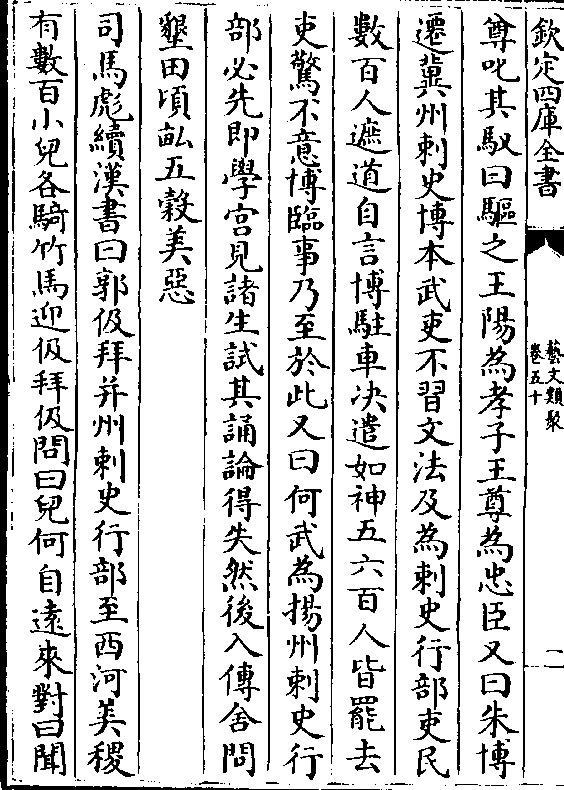 欽定四庫全書
藝文類聚
卷五十
二
尊叱其馭曰驅之王陽為孝子王尊為忠臣又曰朱博
遷冀州刺史博本武吏不習文法及為刺史行部吏民
數百人遮道自言博駐車决遣如神五六百人皆罷去
吏驚不意博臨事乃至於此又曰何武為揚州刺史行
部必先即學宫見諸生試其誦論得失然後入傳舍問
墾田頃畝五穀美惡
司馬彪續漢書曰郭伋拜并州刺史行部至西河美稷
有數百小兒各騎竹馬迎伋拜伋問曰兒何自遠來對曰聞